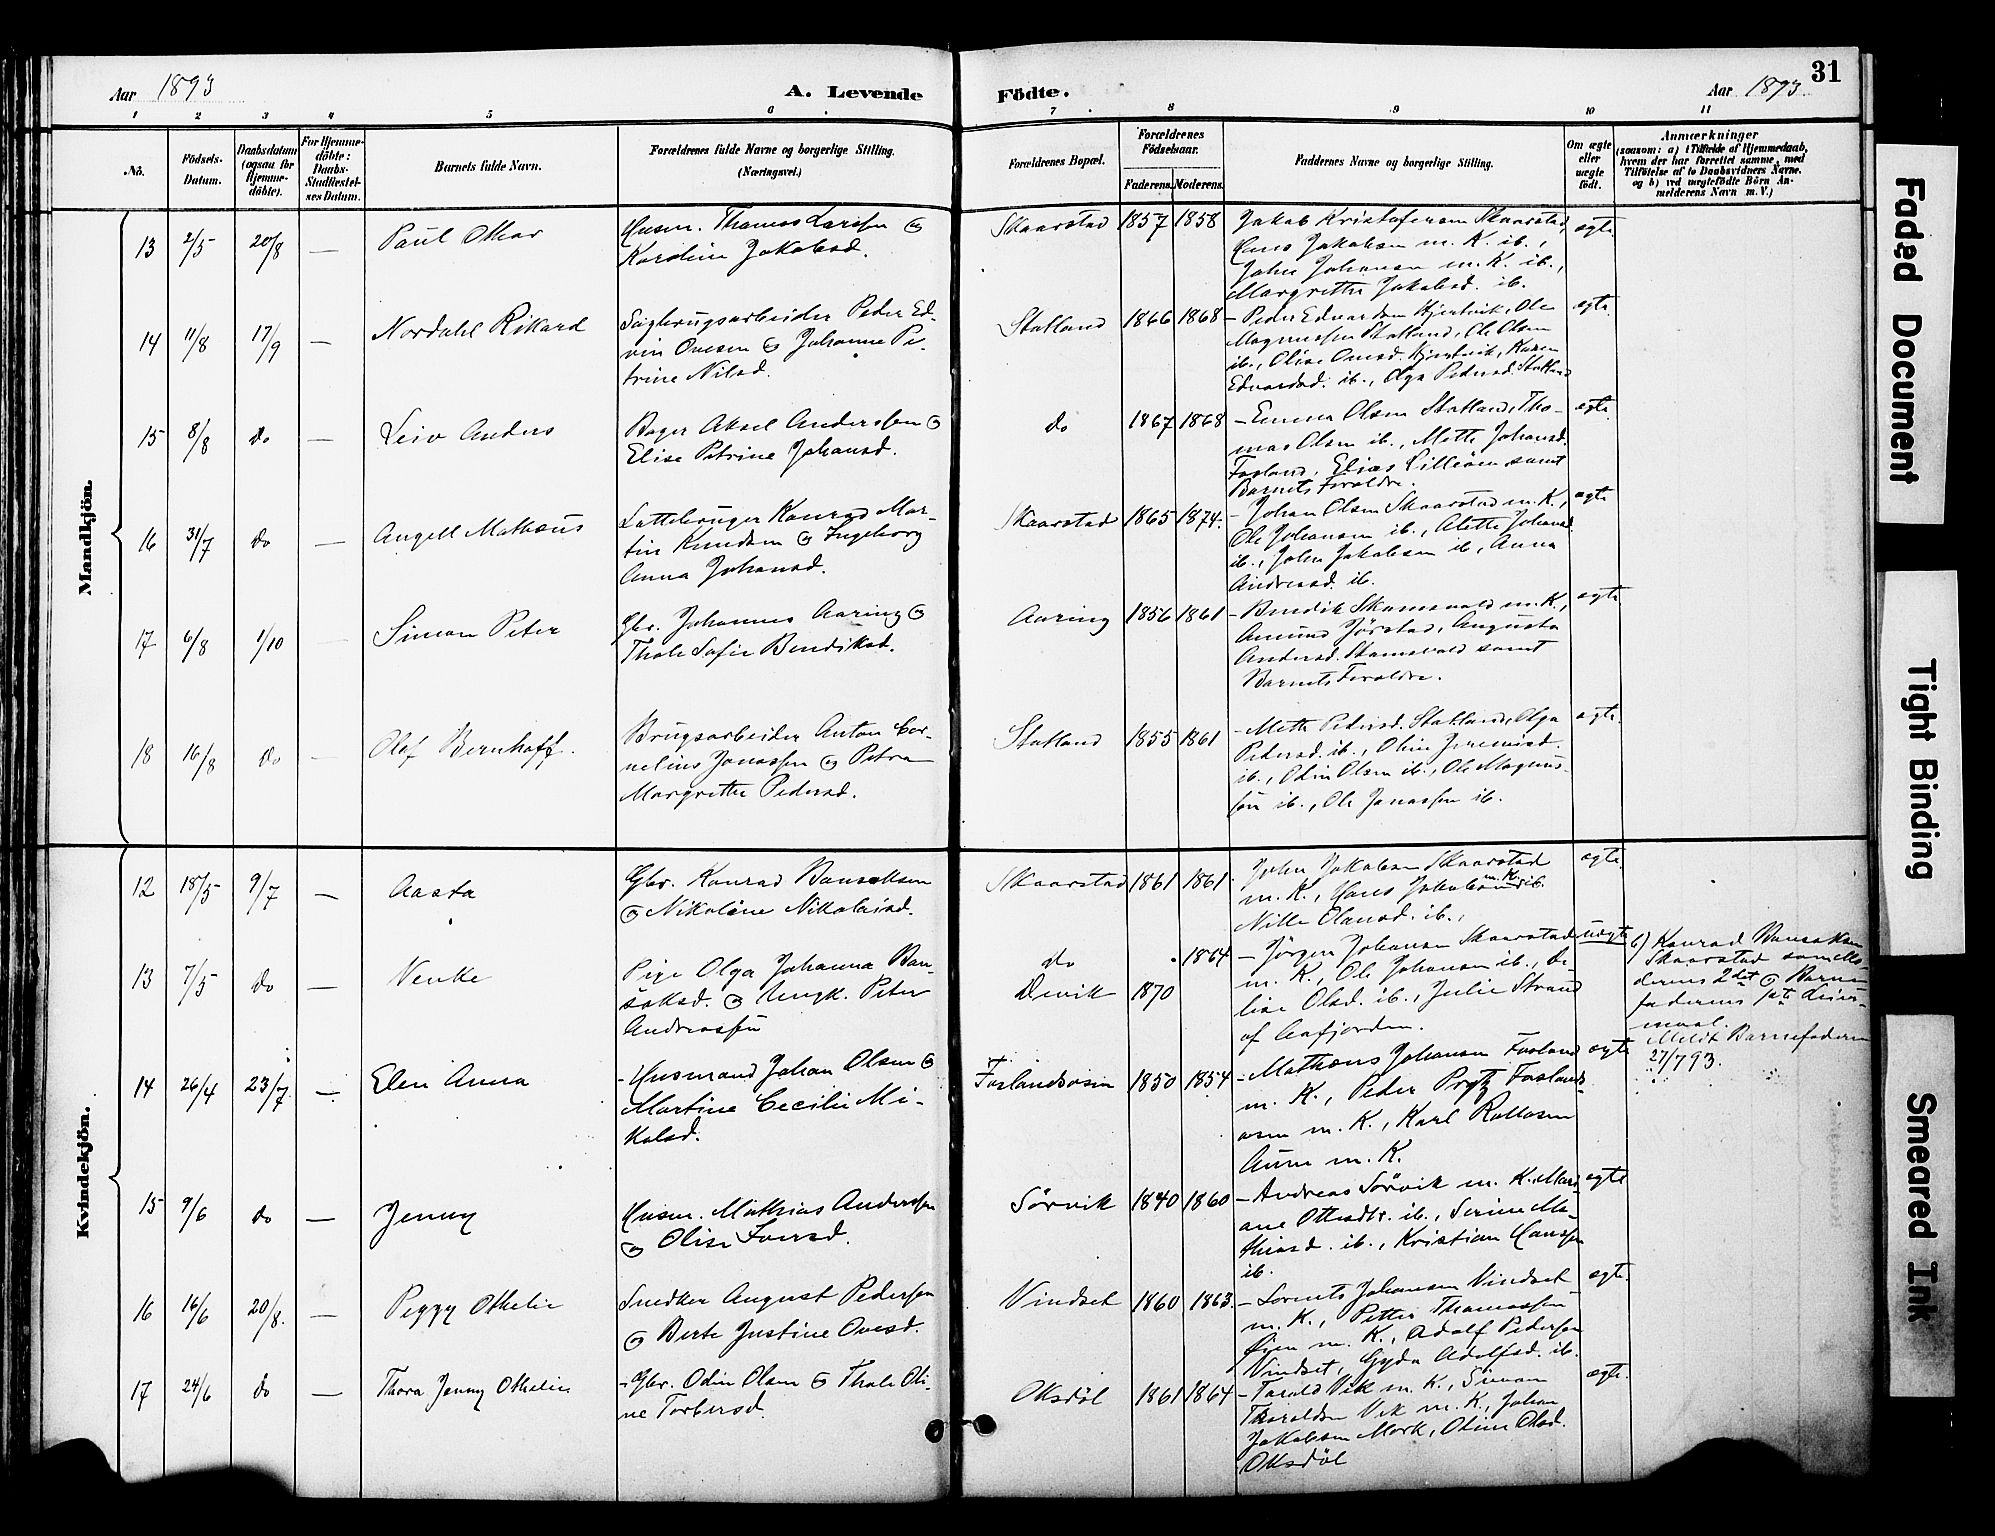 Aar 1893
A. Levende
Födte.
Aar 1893.
31
1 2 3 4 5 6 7 8 9 10 11
No.
Födsels-
Datum.
Daabsdatum
(ogsaa for
Hjemme-
döbte).
For Hjemme-
döbte:
Daabs-
Stadfæstel-
ses Datum.
Barnets fulde Navn.
Forældrenes fulde Navne og borgerlige Stilling.
(Næringsvei.)
Forældrenes Bopæl.
Forældrenes
Födselsaar.
Faderens. Moderens.
Faddernes Navne og borgerlige Stilling.
Om ægte
eller
uægte
födt.
Anmærkninger
(saasom: a) i Tilfælde af Hjemmedaab,
hvem der har forrettet samme, med
Tilföielse af to Daabsvidners Navne.
og b) ved uægtefödte Börn An-
melderens Navn m. V.)
Mandkjön.
13 2/5 20/8 — Paul Othar
Husm. Thomas Larssen og
Karoline Jakobsd.
Skaarstad 1857 1858
Jakob Kristofersen Skaarstad,
Hans Jakobsen m. K. ib.,
John Johansen m. K. ib.,
Margrethe Jakobsd. ib.
ægte
14 11/8 17/9 — Nordahl Rikard
Sagbrugsarbeider Peder Ed-
vin Ovesen og Johanne Pe-
trine Nilsd.
Statland 1866 1868
— Peder Edvardsen Hjertvik, Ole
Magnussen Statland, Ole Olsen
ib., Olise Ovesd. Hjertvik, Karen
Edvardsd. ib., Olga Pedersd. Statland
ægte
15 8/8 do — Leiv Anders
Bager Aksel Anderssen og
Elise Petrine Johansd.
do 1867 1868
— Emma Olsen Statland, Tho-
mas Olsen ib., Mette Johansd.
Fosland, Elias Lilleöen samt
Barnets Foraldre.
ægte
16 31/7 do — Angell Mathæus
Konrad Mar-
tin Knudsen og Ingeborg
Anna Johansd.
Skaarstad 1865 1874.
— Johan Olsen Skaarstad m. K.,
Ole Johansen ib., Alette Johansd.
ib., John Jakobsen ib., Anna
Andreasd. ib.
ægte
17 6/8 1/10 — Simon Peter
Gbr. Johannes Aaring og
Thale Sofie Bendiksd.
Aaring 1856 1861
— Bendik m. K.,
Amund Jörstad, Augusta
Andersd. samt
Barnets Foraldre.
ægte
18 16/8 do — Olaf Bernhoff.
Brugsarbeider Anton Cor-
nelius Jonassen og Petra
Margrethe Pedersd.
Statland 1855 1861
— Mette Pedersd. Statland, Olga
Pedersd. ib., Oline Jeremiasd.
ib., Odin Olsen ib., Ole Magnus-
sen ib., Ole Jonassen ib.
ægte
Kvindekjön.
12 18/5 9/7 — Aasta
Gbr. Konrad Bansaksen
og Nikoline Nikolaisd.
Skaarstad 1861 1861
John Jakobsen Skaarstad
m. K., Hans Jakobsen m. K. ib.
Nille Olausd. ib.,
ægte
13 7/5 do — Venke
Pige Olga Johanna Ban-
saksd. og Ungk. Peter
Andreassen
do 1864
Devik 1870
— Jörgen Johansen Skaarstad
m. K., Ole Johansen ib., De-
lise Olsd. ib., Julie Strand
af Aafjorden.
uægte
b) Konrad Bansaksen
Skaarstad som Mo-
derens 2det og Barne-
faderens 1ste Leier-
maal.
Meldt Barnefaderen
27/7 93.
14 26/4 23/7 — Elen Anna
— Husmand Johan Olsen og
Martine Cecilie Mi-
kalsd.
Foslandsosen 1850 1854
— Mathæus Johansen Fosland
m. K., Peder Prytz Foslands-
osen m. K., Karl
Aune m. K.
ægte
15 9/6 do — Jenny
Husm. Mathias Anderssen
og Olise Iversd.
Sörvik 1840 1860
— Andreas Sörvik m. K. Mari-
ane Ottesdtr. ib., Serine Ma-
thiasd. ib., Kristian Hanssen
ib.
ægte
16 16/6 20/8. — Peggy Othelie
Snedker August Pedersen
og Berte Justine Ovesd.
Vindset 1860 1863.
— Lorents Johansen Vindset
m. K., Petter Thomassen
Öien m. K., Adolf Pedersen
Vindset, Gyda Adolfsd. ib.
ægte.
17 24/6 do — Thora Jenny Othelie
— Gbr. Odin Olsen og Thale Oli-
ne Torbersd.
Oksdöl 1861 1864
— Torald Vik m. K., Simon
Thoraldsen Vik m. K., Johan
Jakobsen Mork, Oline Olsd.
Oksdöl
ægte.
Faded Document
Tight Binding
Smeared Ink